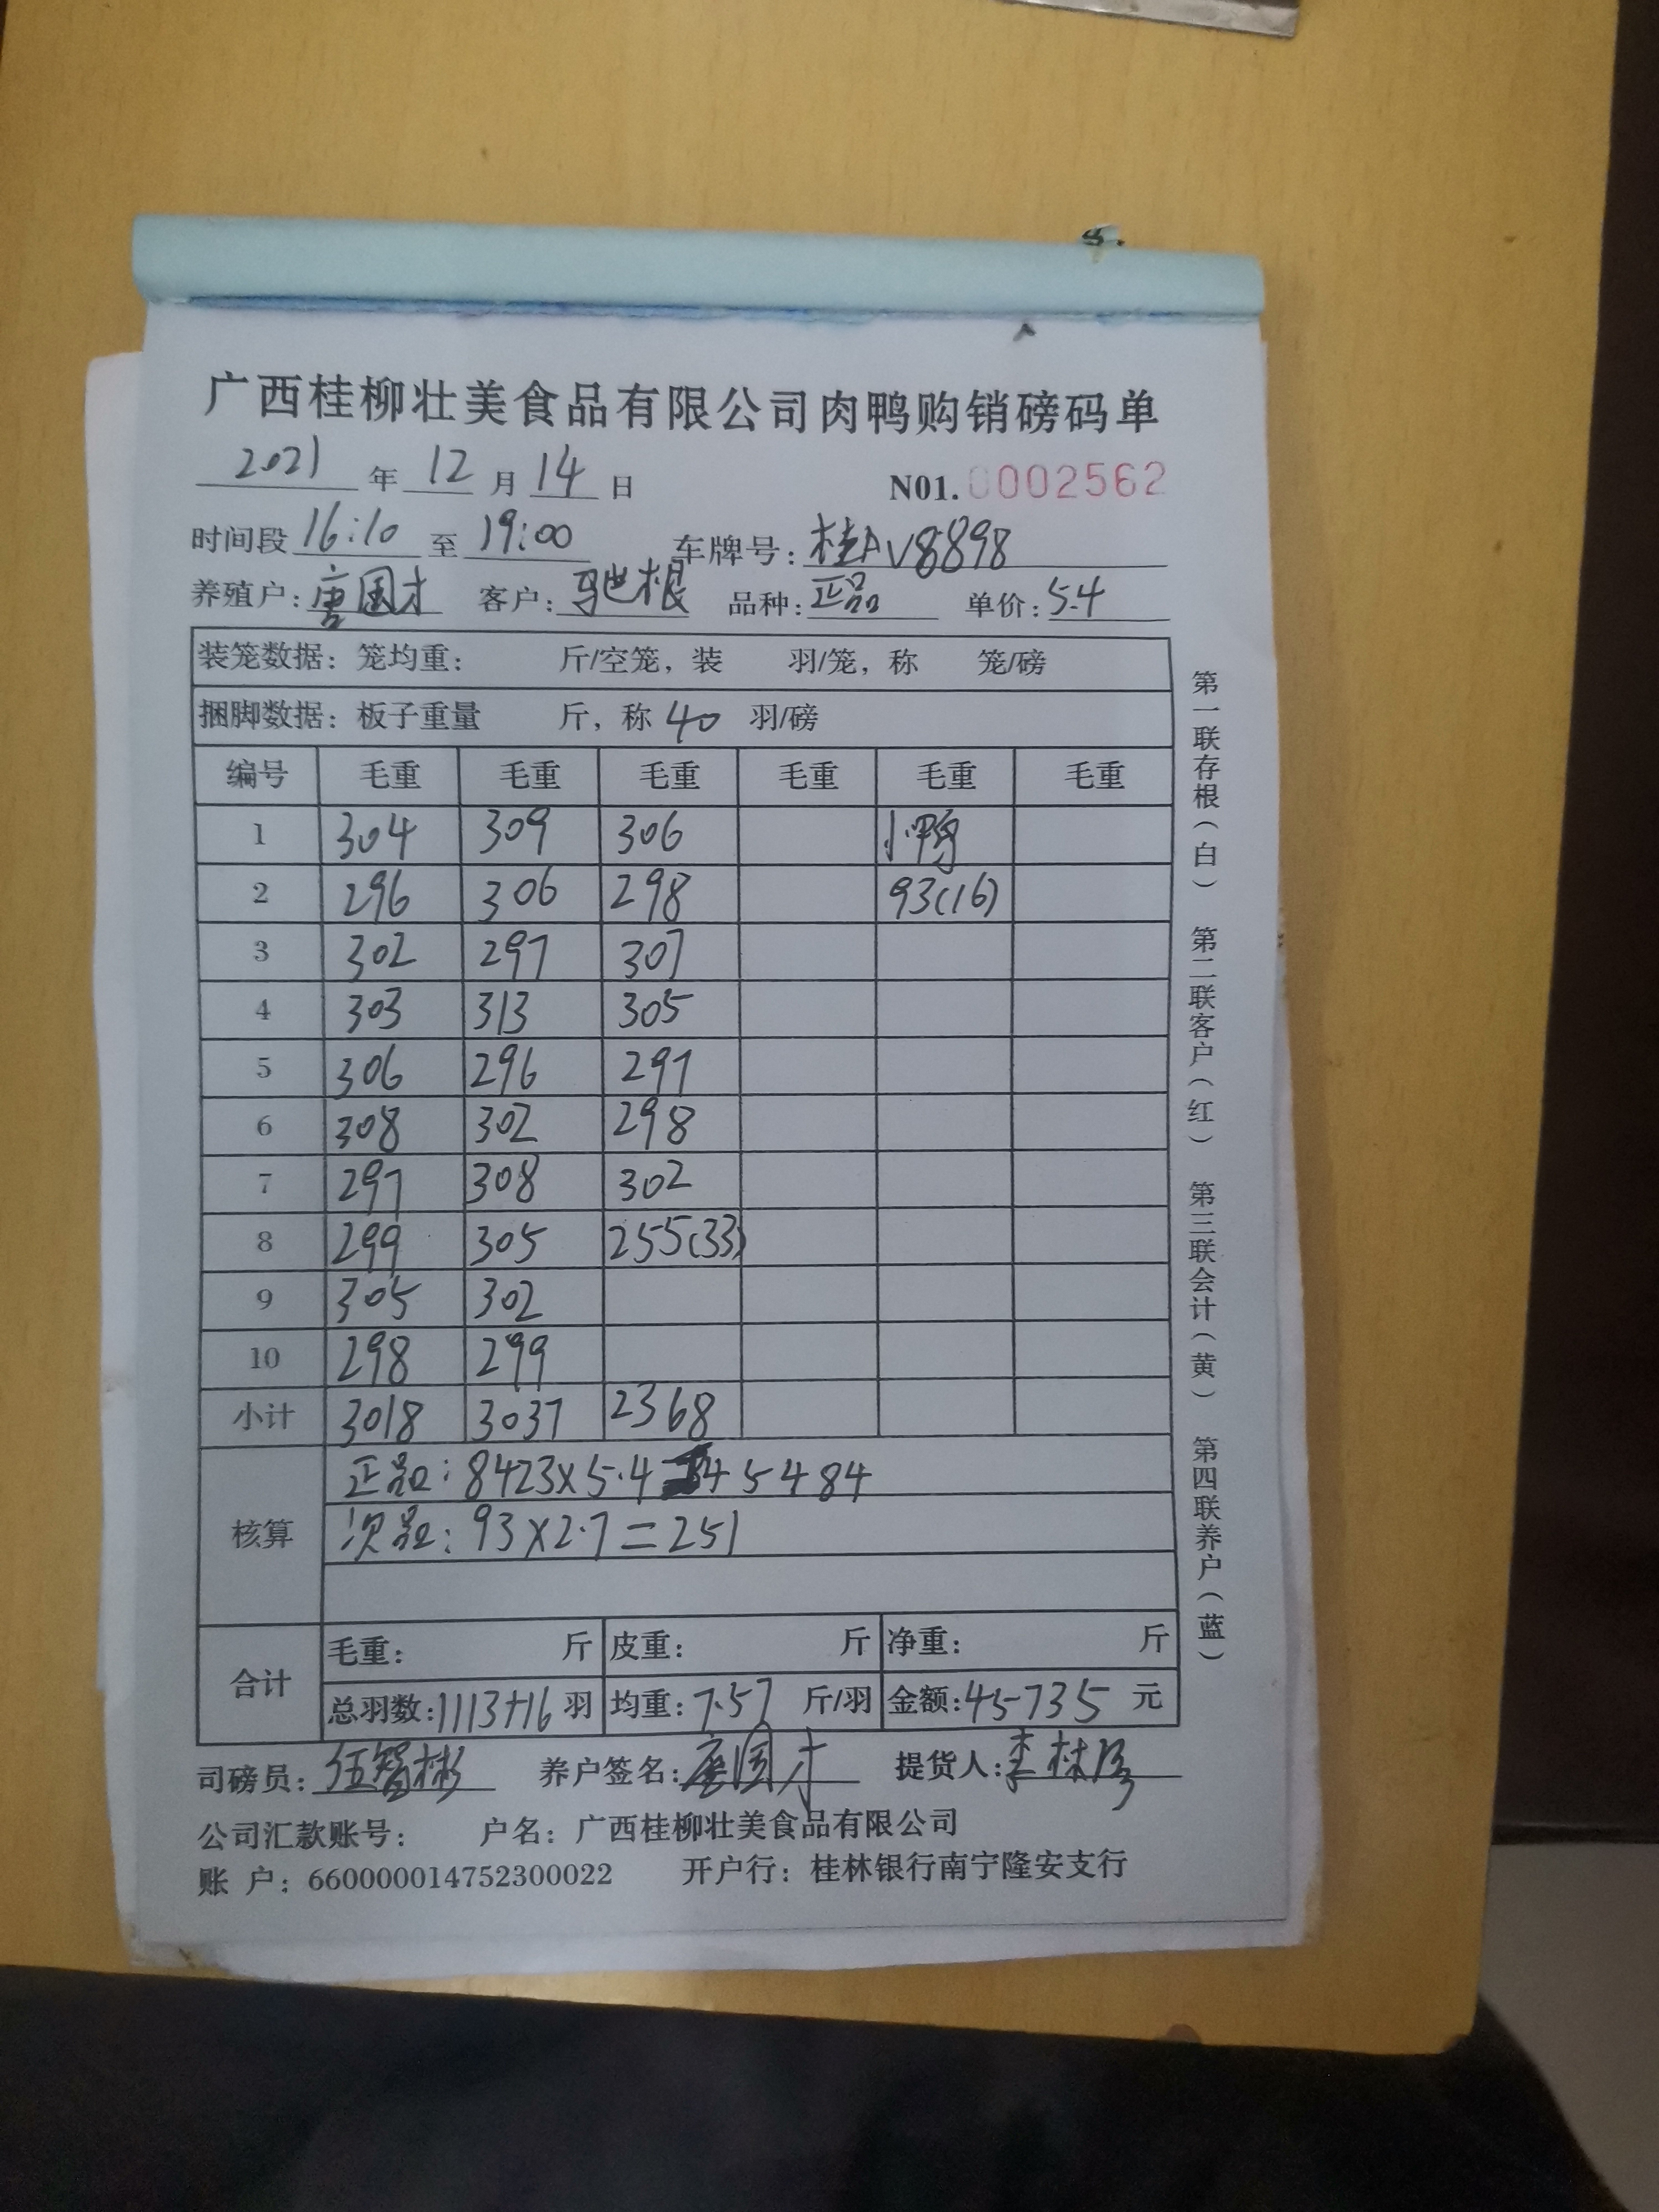 广西桂柳壮美食品有限公司肉鸭购销磅码单
2021 年 12 月 14 日 N01. 0002562
时间段 16:10 至 19:00 车牌号: 桂AV8898
养殖户: 唐国才 客户: 驰根 品种: 正品 单价: 5.4
装笼数据: 笼均重: 斤/空笼, 装 羽/笼, 称 笼/磅
捆脚数据: 板子重量 斤, 称 40 羽/磅
编号 毛重 毛重 毛重 毛重 毛重 毛重
1 304 309 306 小鸭
2 296 306 298 93(16)
3 302 297 307
4 303 313 305
5 306 296 297
6 308 302 298
7 297 308 302
8 299 305 255(33)
9 305 302
10 298 299
小计 3018 3037 2368
核算
正品: 8423×5.4=45484
次品: 93×2.7=251
合计
毛重: 斤 皮重: 斤 净重: 斤
总羽数: 1113+16 羽 均重: 7.57 斤/羽 金额: 45735 元
司磅员: 伍智彬 养户签名: 唐国才 提货人: 李林
公司汇款账号: 户名: 广西桂柳壮美食品有限公司
账 户: 660000014752300022 开户行: 桂林银行南宁隆安支行
第一联存根(白) 第二联客户(红) 第三联会计(黄) 第四联养户(蓝)